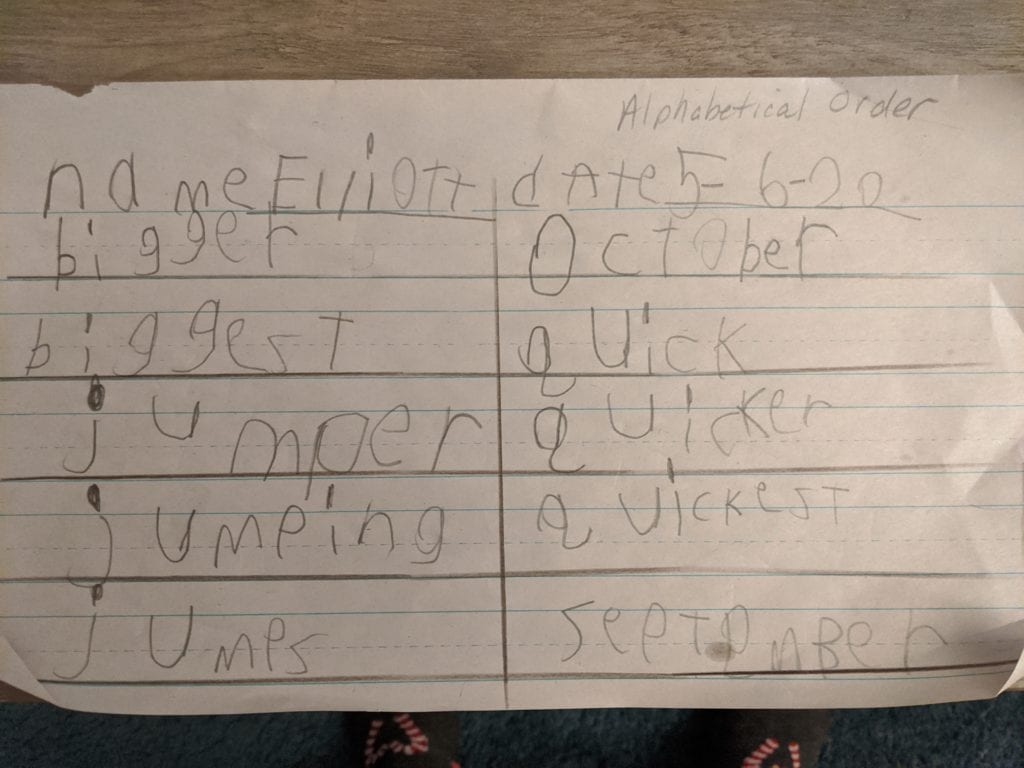 Alphabetical Order
name Elliott date 5-6-20
bigger
biggest
jumper
jumping
jumps
October
quick
quicker
quickest
Septomber